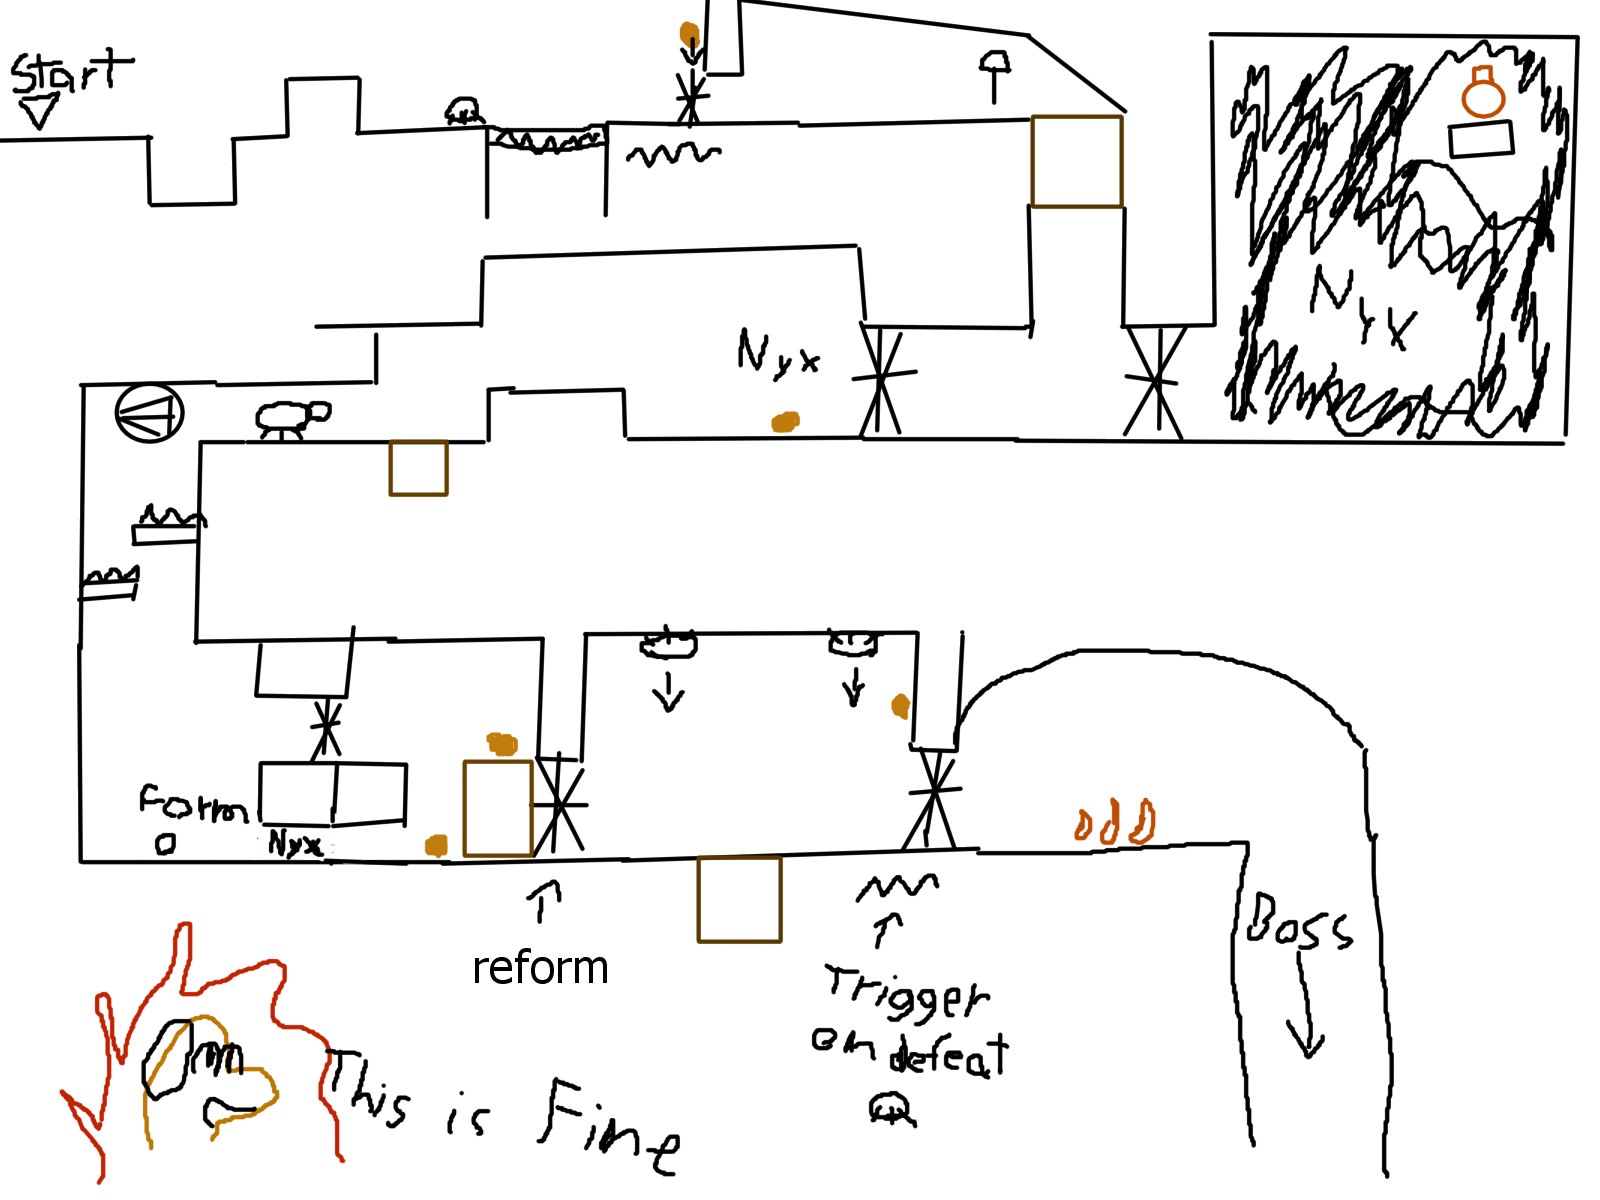 Start
Nyx
Nyx
Form
Nyx
reform
Trigger
on defeat
Boss
This is Fine